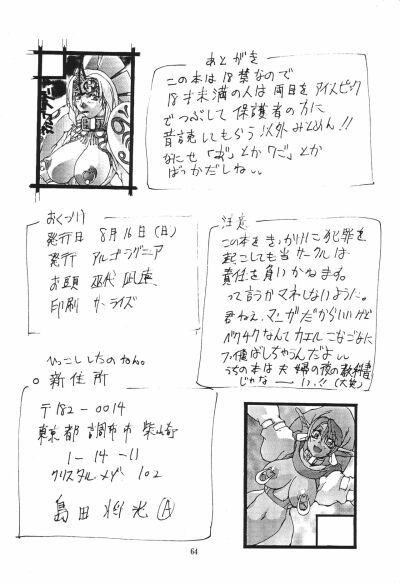 あとがき
この本は18禁なので
18才未満の人は両目をアイスピック
でつぶして保護者の方に
音読してもらう以外みとめん!!
なにせ「お」とか「ワ」とか
ばっかだしね
おくづけ
発行日 8月16日(日)
発行 アルゴラグニア
お頭
印刷 サンライズ
注意
この本をきっかけに犯罪を
起こしても当サークルは
責任を負いかねます。
って言うかマネしないように。
君ねえ、マンガだからいいけど
なんてカエル
ちゃうんだよ
うちの本は夫婦の夜の教科書
じゃな い!!(大笑)
ひっこししたのねん。
○新住所
〒182-0014
東京都調布市柴崎
1-14-11
クリスタルメゾン 102
島田
64